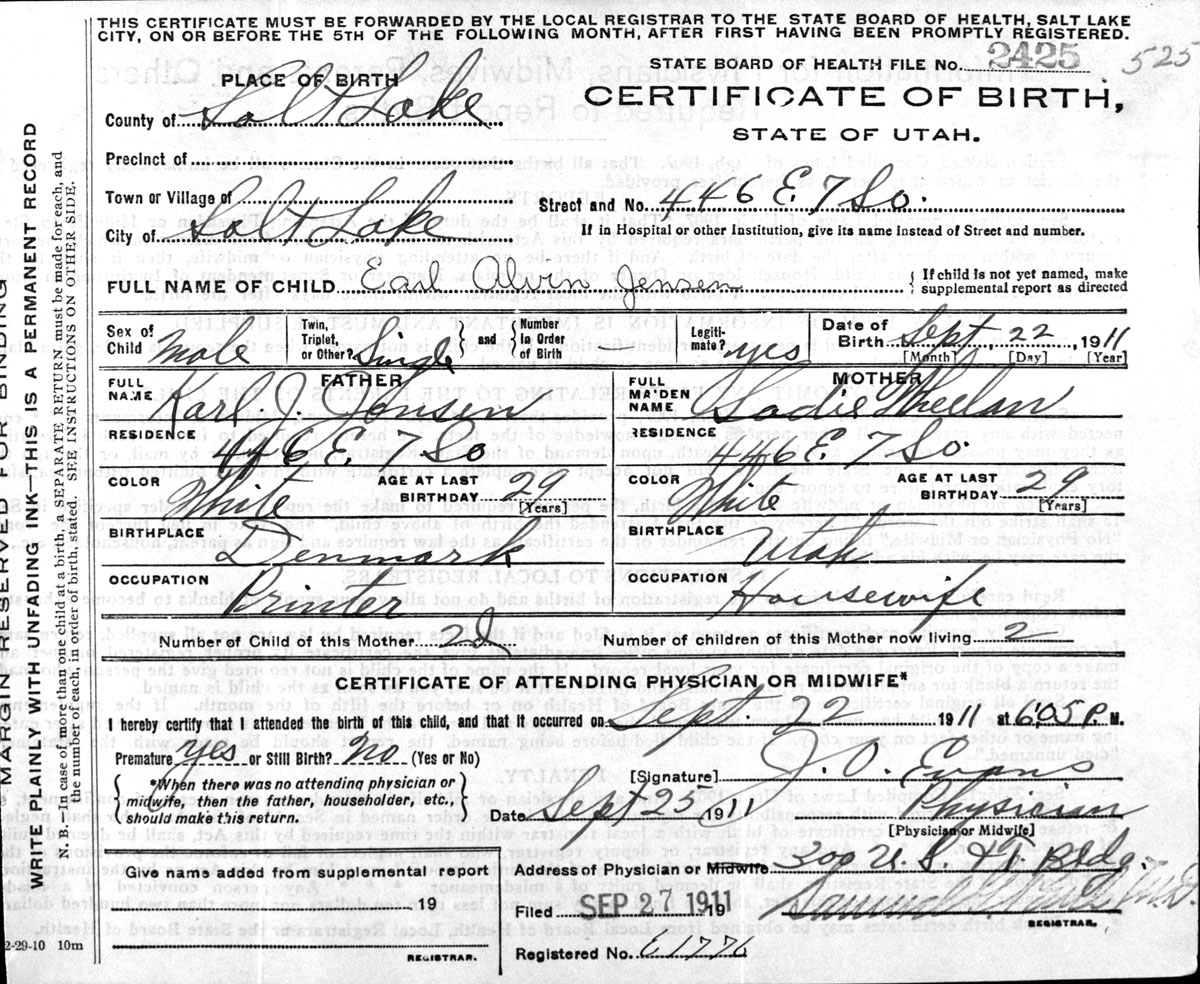 THIS CERTIFICATE MUST BE FORWARDED BY THE LOCAL REGISTRAR TO THE STATE BOARD OF HEALTH, SALT LAKE
CITY, ON OR BEFORE THE 5TH OF THE FOLLOWING MONTH, AFTER FIRST HAVING BEEN PROMPTLY REGISTERED.
STATE BOARD OF HEALTH FILE NO. 2425 525
PLACE OF BIRTH
CERTIFICATE OF BIRTH,
County of Salt Lake
STATE OF UTAH.
Precinct of
Town or Village of
Street and No. 446 E. 7 So.
City of Salt Lake
If in Hospital or other Institution, give its name instead of Street and number.
FULL NAME OF CHILD Earl Alvin Jensen { If child is not yet named, make
supplemental report as directed
Sex of Child Male Twin, Triplet, or Other? Single and Number in Order of Birth Legiti-mate? yes Date of Birth Sept. 22, 1911
[Month] [Day] [Year]
FATHER
FULL NAME Karl J. Jensen
RESIDENCE 446 E. 7 So
COLOR White AGE AT LAST BIRTHDAY 29 [Years]
BIRTHPLACE Denmark
OCCUPATION Printer
MOTHER
FULL MAIDEN NAME Sadie Wheelan
RESIDENCE 446 E. 7 So
COLOR White AGE AT LAST BIRTHDAY 29 [Years]
BIRTHPLACE Utah
OCCUPATION Housewife
Number of Child of this Mother 2d Number of children of this Mother now living 2
CERTIFICATE OF ATTENDING PHYSICIAN OR MIDWIFE*
I hereby certify that I attended the birth of this child, and that it occurred on Sept. 22 1911 at 6:05 P. M.
Premature yes or Still Birth? No (Yes or No)
*When there was no attending physician or
midwife, then the father, householder, etc.,
should make this return.
[Signature] J. O. Evans
Date Sept 25 1911 Physician
[Physician or Midwife]
Address of Physician or Midwife 309 U. S. & T. Bldg.
Give name added from supplemental report
19
REGISTRAR.
Filed SEP 27 1911 19
REGISTRAR.
Registered No. E1776
2-29-10 10m
MARGIN RESERVED FOR BINDING
WRITE PLAINLY WITH UNFADING INK—THIS IS A PERMANENT RECORD
N. B. In case of more than one child at a birth, a SEPARATE RETURN must be made for each, and
the number of each, in order of birth, stated. SEE INSTRUCTIONS ON OTHER SIDE.